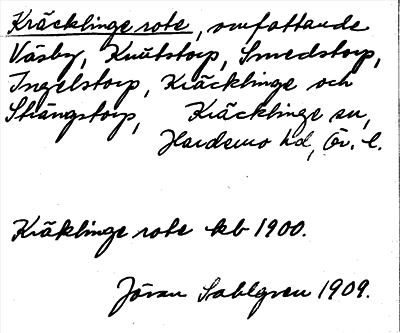 Kräcklinge rote, omfattande
Väsby, Knutstorp, Smedstorp,
Ingelstorp, Kräcklinge och
Strängstorp, Kräcklinge sn,
Hardemo hd, Ör. l.
Kräklinge rote kb 1900.
Jöran Sahlgren 1909.